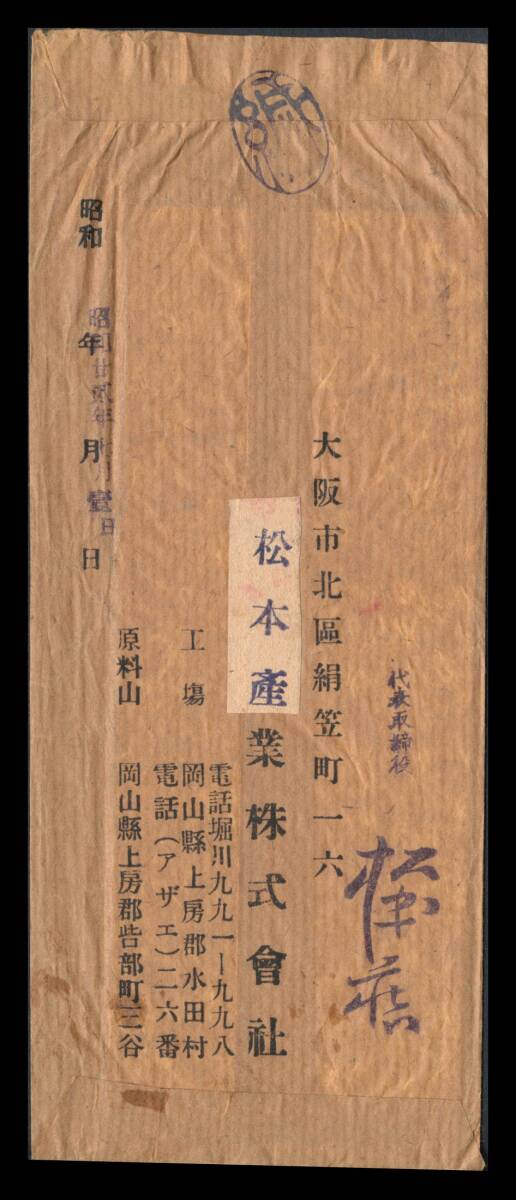 代表取締役
大阪市北區絹笠町一六
松本產業株式會社
電話堀川九九一―九九八
工塲　岡山縣上房郡水田村
電話(アザエ)二六番
原料山　岡山縣上房郡呰部町三谷
昭和　年　月　日
昭和廿貳年七月壹日